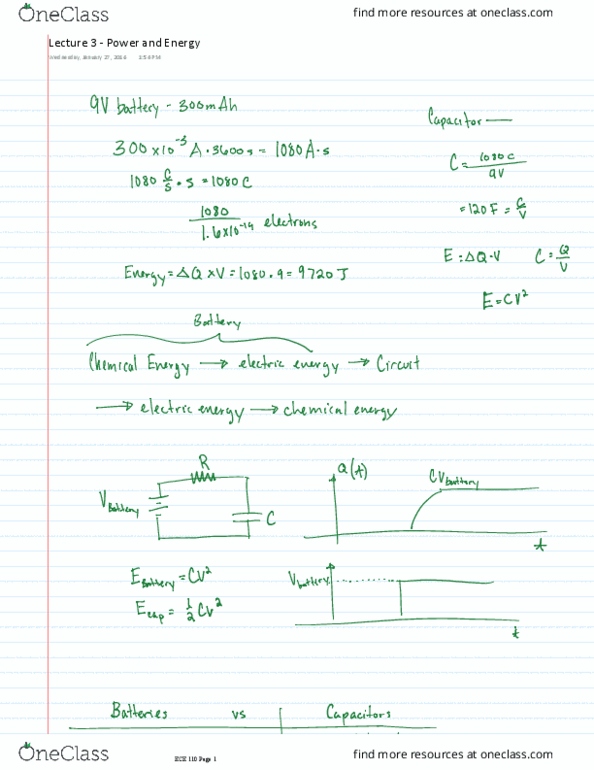 OneClass
find more resources at oneclass.com
Lecture 3 - Power and Energy
Wednesday, January 27, 2016 3:54 PM
9V battery - 300mAh
300 x10⁻³ A · 3600 s = 1080 A·s
1080 C/s · s = 1080 C
1080 / 1.6x10⁻¹⁹ electrons
Energy = ΔQ x V = 1080 · 9 = 9720 J
Capacitor —
C = 1080C / 9V
= 120 F = C/V
E = ΔQ·V C = Q/V
E = CV²
Battery
Chemical Energy → electric energy → Circuit
→ electric energy → chemical energy
R
V Battery
C
Q(t)
CV battery
t
E Battery = CV²
E cap = 1/2 CV²
V battery
t
Batteries vs Capacitors
OneClass
ECE 110 Page 1
find more resources at oneclass.com